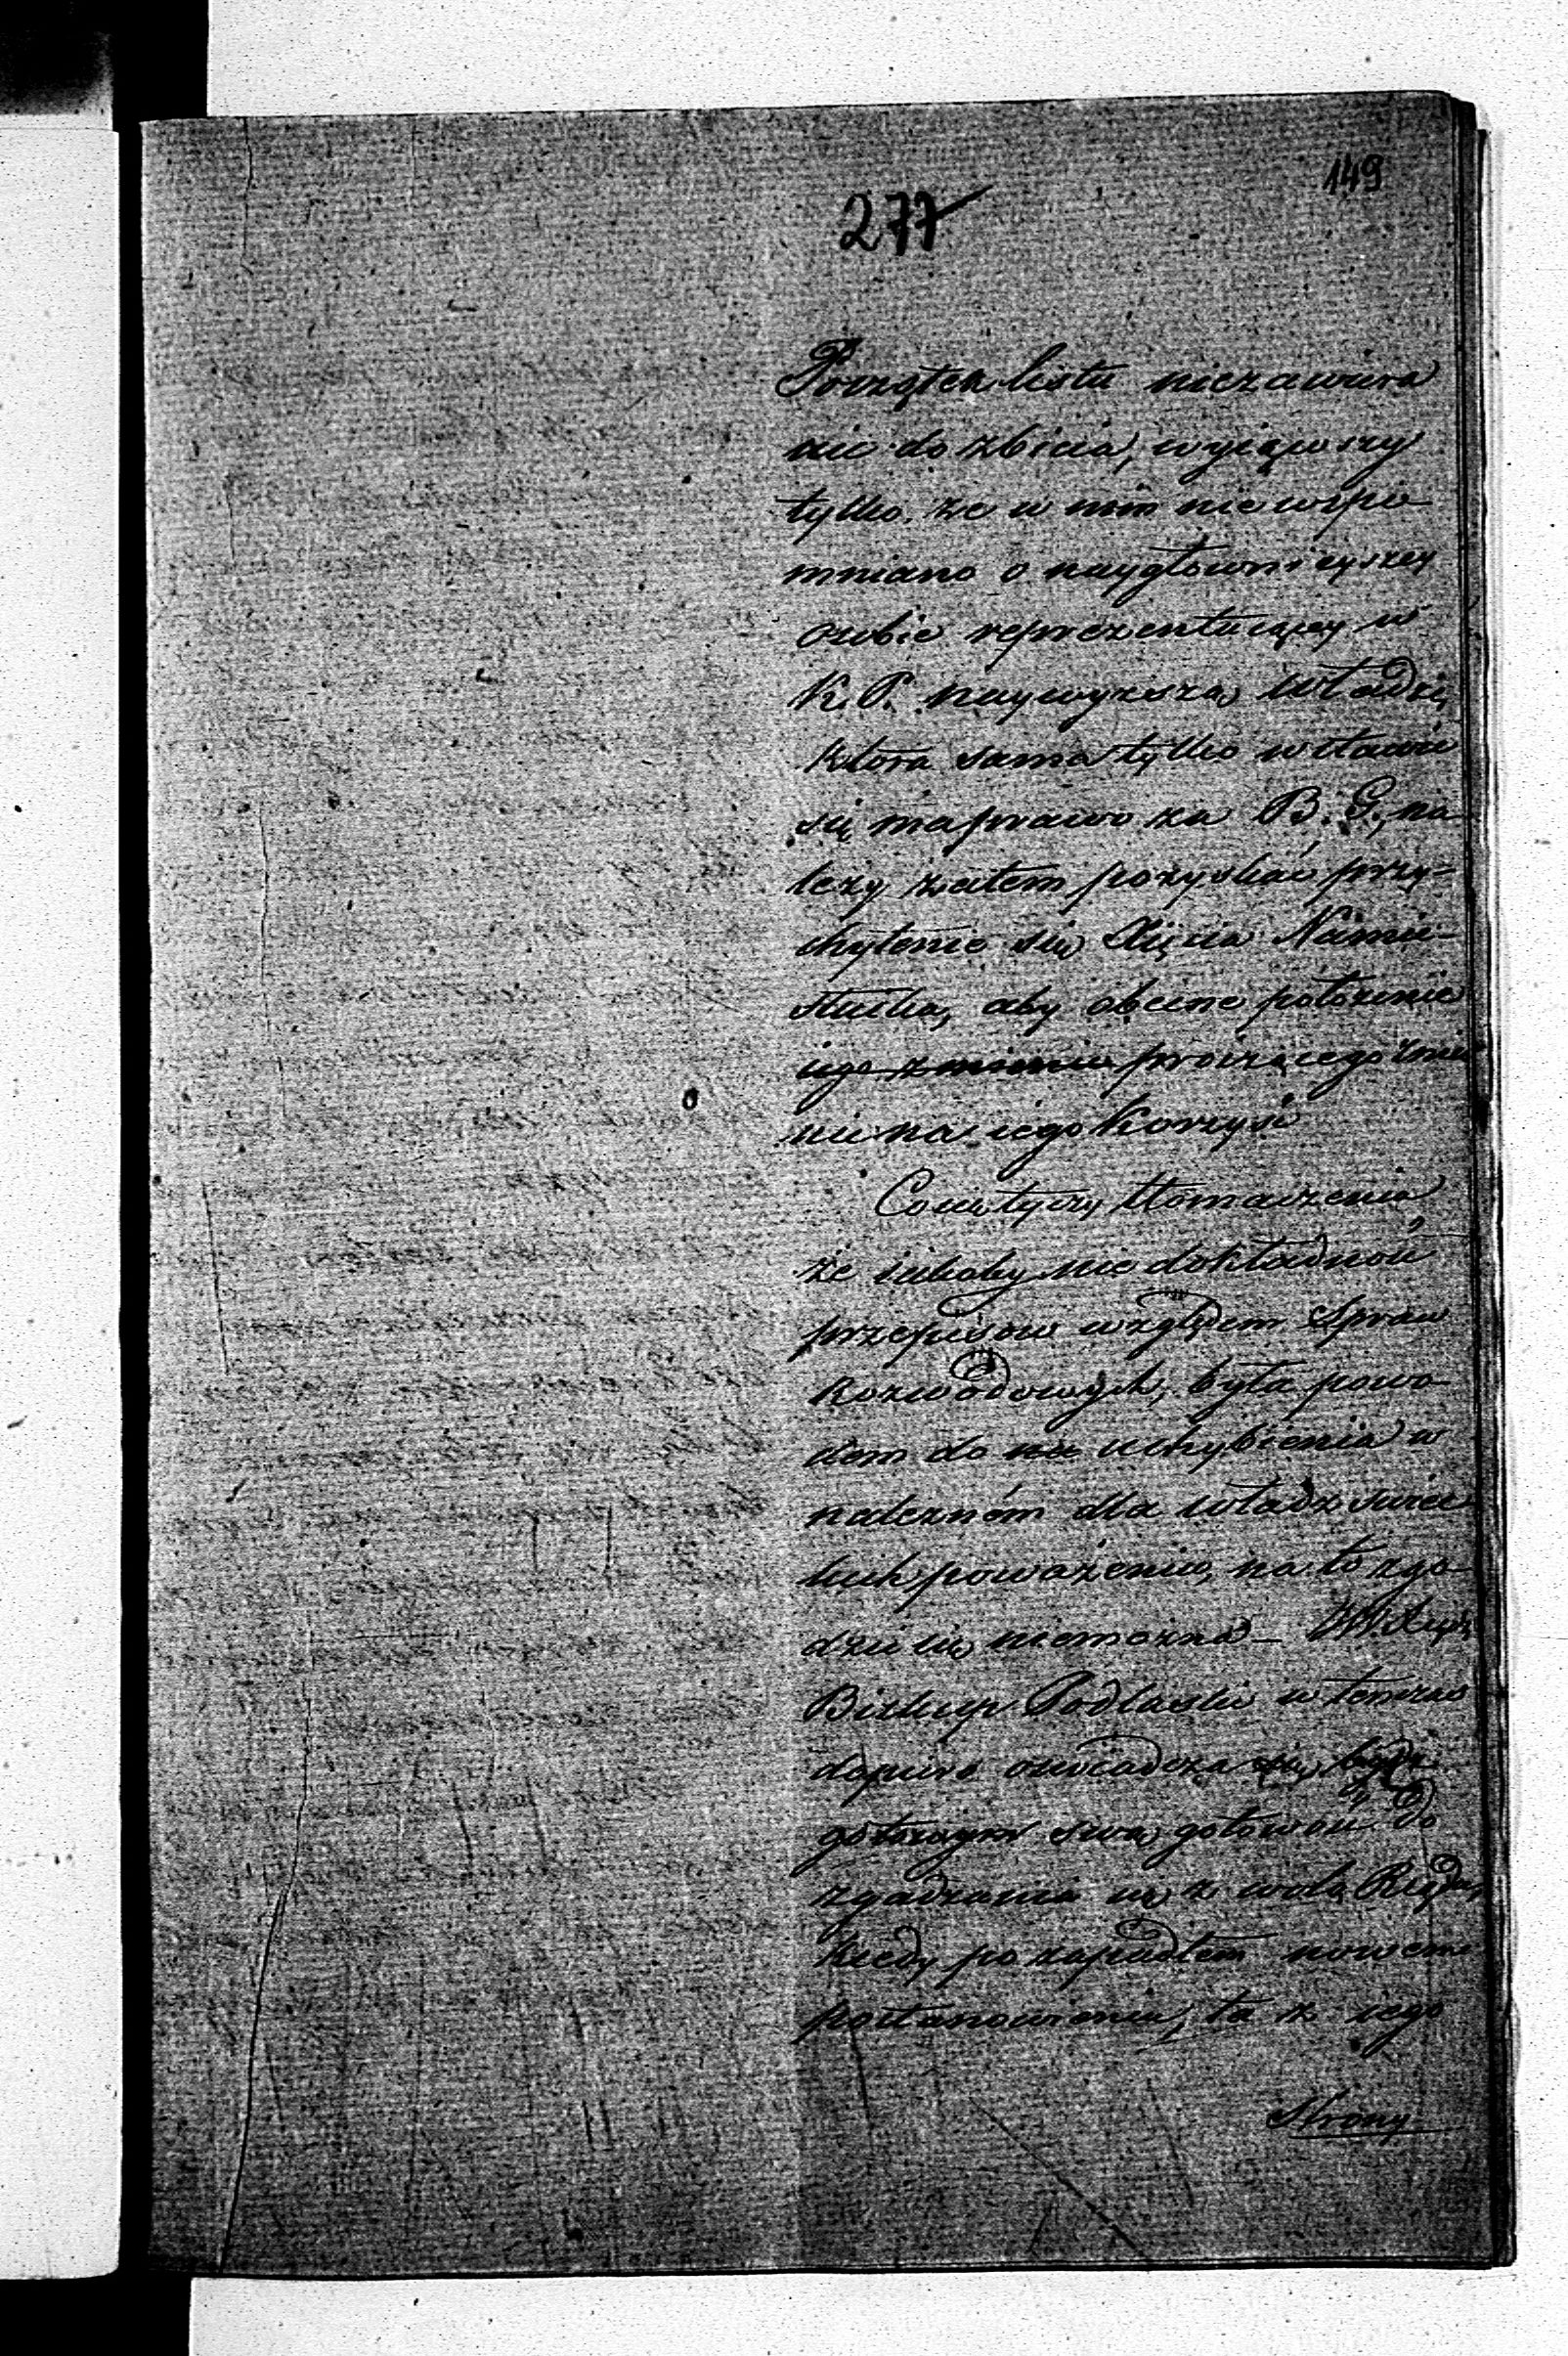 149
277
Początek listu niezawiera
nic do zbicia, wyiąwszy
tylko. że w nim nie wspo-
mniano o naygłownieyszey
osobie reprezentuiącey w
K. P. naywyższą władzę,
która sama tylko wstawić
się ma prawo za B. G., na-
leży zatem pozyskać przy-
chylenie się Xięcia Namie-
stnika, aby obecne położenie
iego zmienia
nie na iego korzyść
Co się tyczy tłomaczenia
że iakoby niedokładność
przepisow względem Spraw
Rozwodowych, była powo-
dem do uchybienia w
należném dla władz świec-
kich poważeniu, na to zgo-
dzić się niemożna –
Biskup Podlaski w tenczas
dopiero oswiadcza się
swą gotowość do
zgadzania się z wolą Rządu,
kiedy po zapadłem nowem
postanowieniu, ta z iego
strony